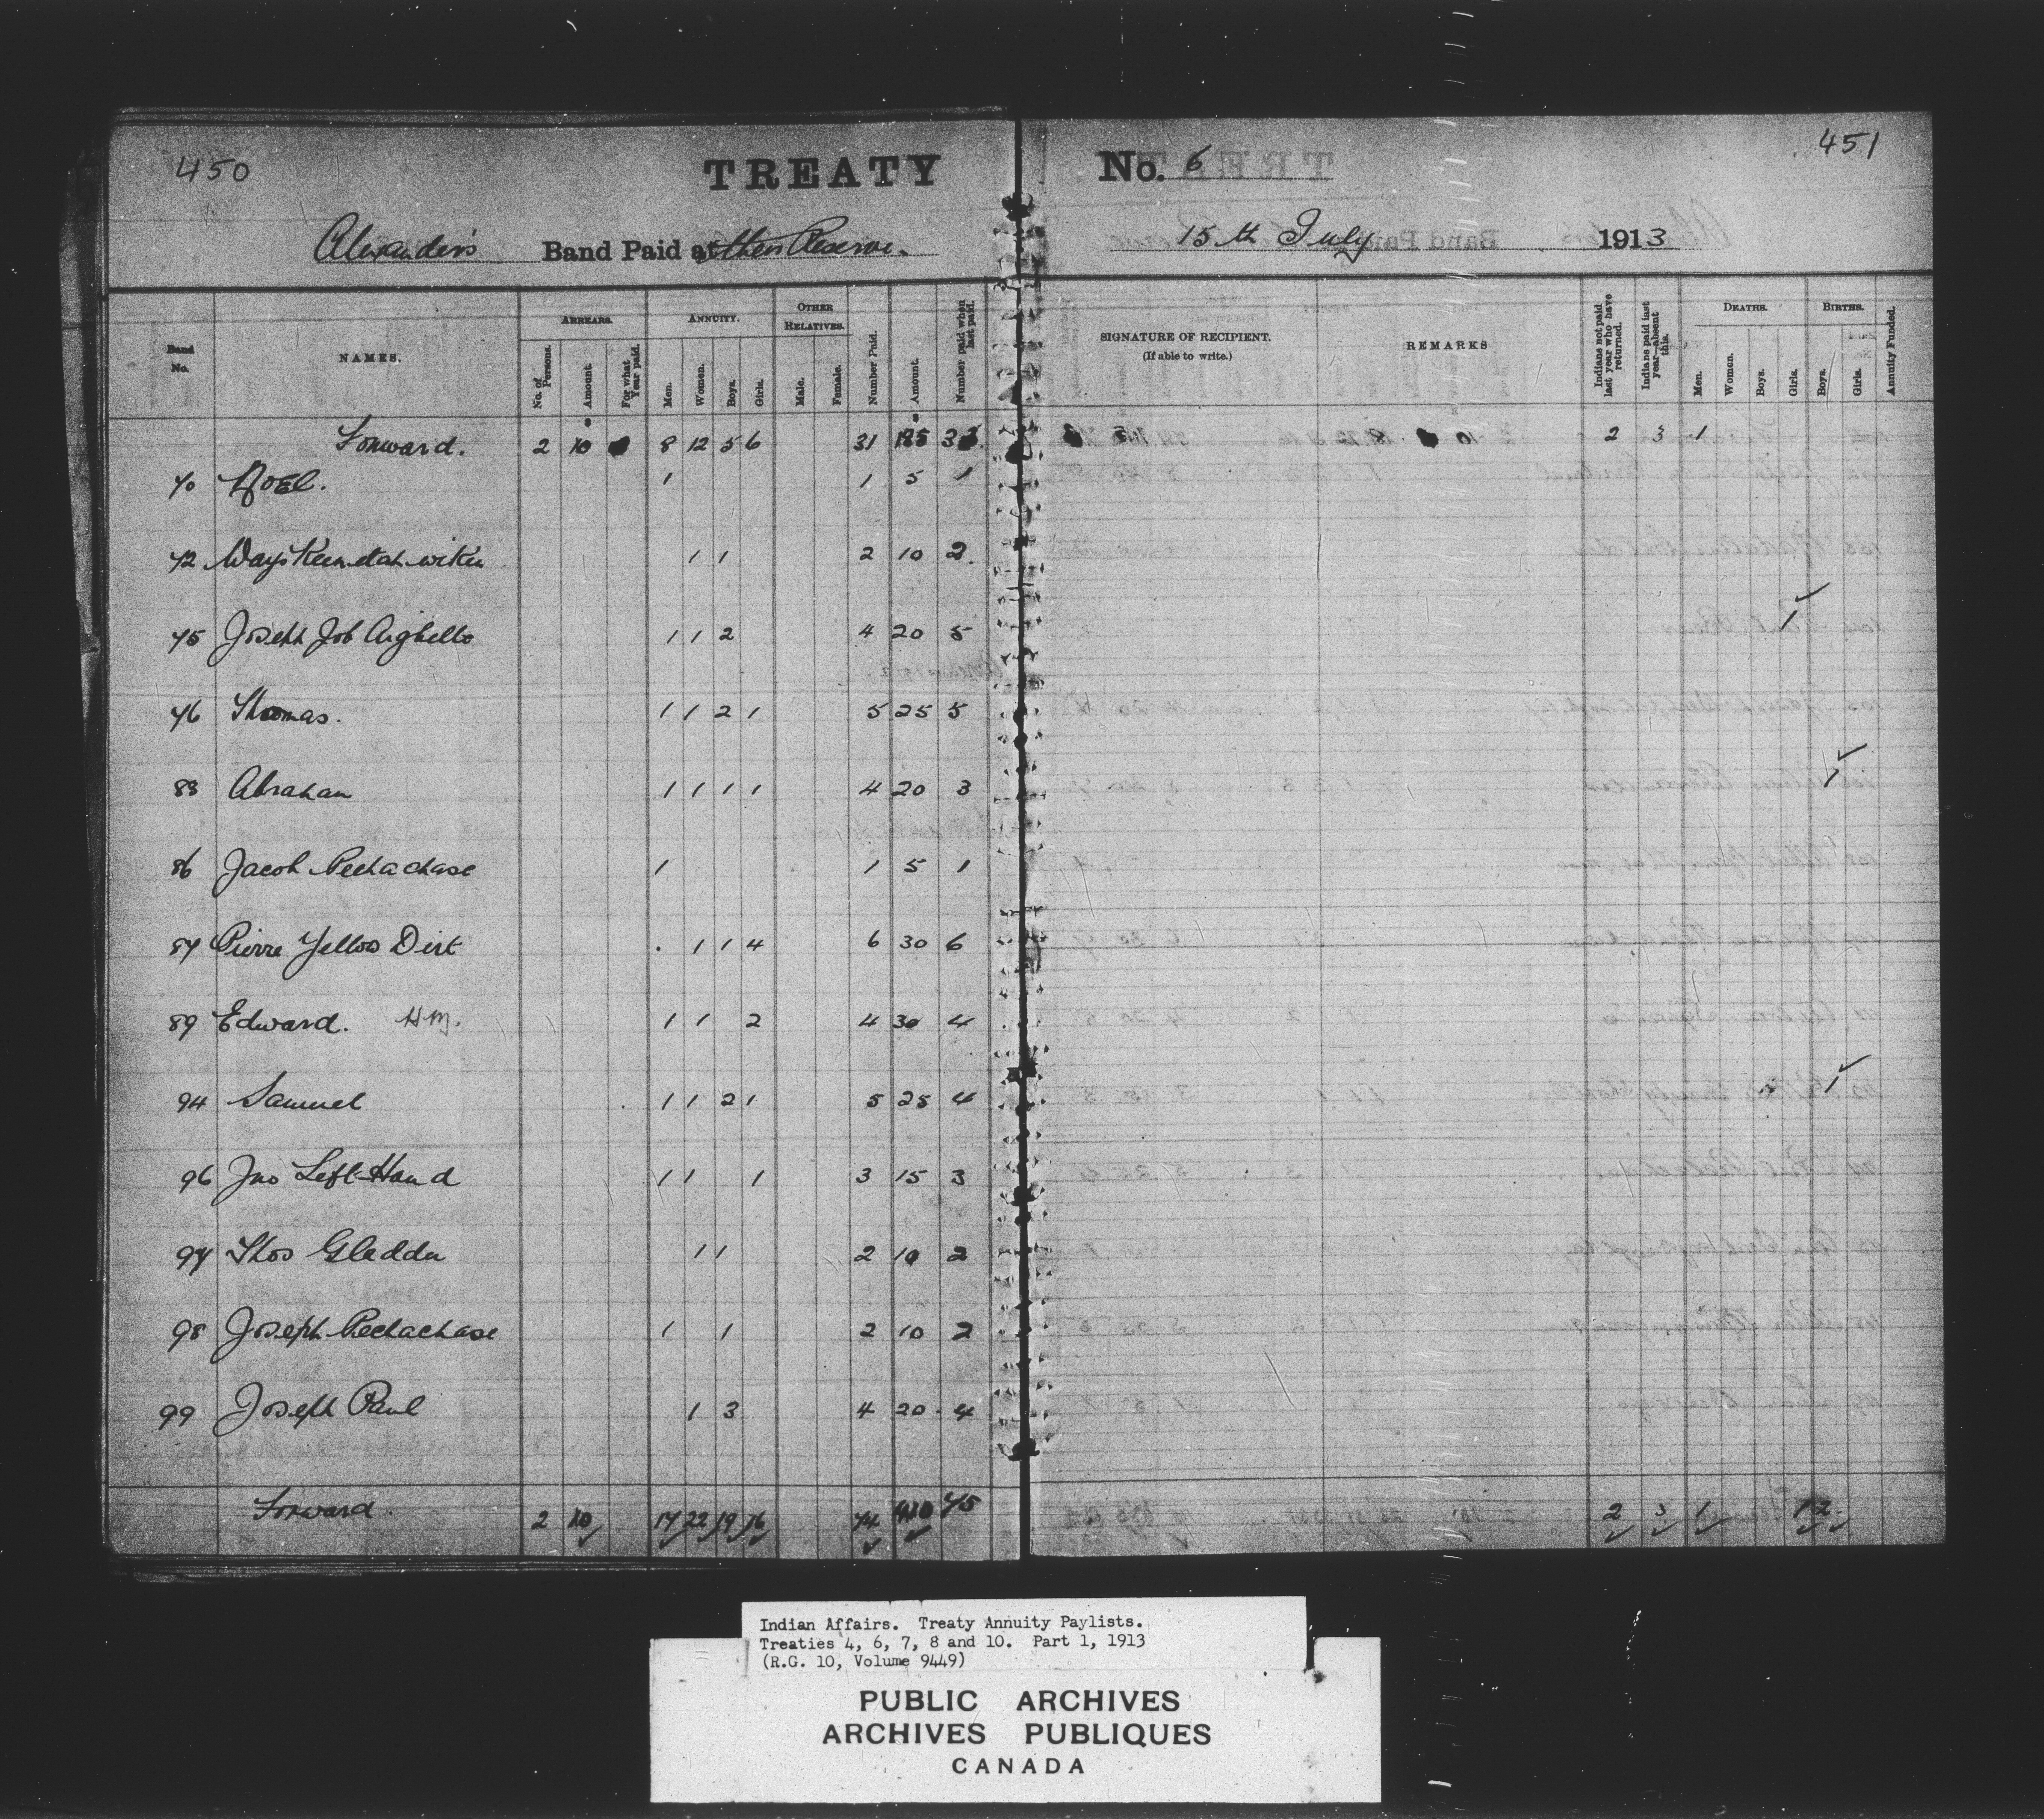 450
451
TREATY No. 6
Alexander's Band Paid at their Reserve. 15th July 1913
Band No.
NAMES.
ARREARS.
No. of Persons.
Amount.
For what Year paid.
ANNUITY.
Men.
Women.
Boys.
Girls.
OTHER RELATIVES.
Male.
Female.
Number Paid.
Amount.
Number paid when last paid.
SIGNATURE OF RECIPIENT.
(If able to write.)
REMARKS
Indians not paid last year who have returned.
Indians paid last year—absent this.
DEATHS.
Men.
Women.
Boys.
Girls.
BIRTHS.
Boys.
Girls.
Annuity Funded.
Forward. 2 10 8 12 5 6 31 185 2 3 1
70 Noel. 1 1 5 1
72 1 1 2 10 2
75 Joseph Job 1 1 2 4 20 5 1 ✓
76 Thomas. 1 1 2 1 5 25 5
83 Abraham 1 1 1 1 4 20 3 1 ✓
86 Jacob Peechachase 1 1 5 1
87 Pierre Yellow Dirt . 1 1 4 6 30 6
89 Edward. H.M. 1 1 2 4 30 4
94 Samuel 1 1 2 1 5 25 4 1 ✓
96 Jno Left Hand 1 1 1 3 15 3
97 Thos Gladdu 1 1 2 10 2
98 Joseph Peechachase 1 1 2 10 2
99 Joseph Paul 1 3 4 20 4
Forward. 2 10 17 22 19 16 74 410 75 2 3 1 1 2
Indian Affairs. Treaty Annuity Paylists.
Treaties 4, 6, 7, 8 and 10. Part 1, 1913
(R.G. 10, Volume 9449)
PUBLIC ARCHIVES
ARCHIVES PUBLIQUES
CANADA